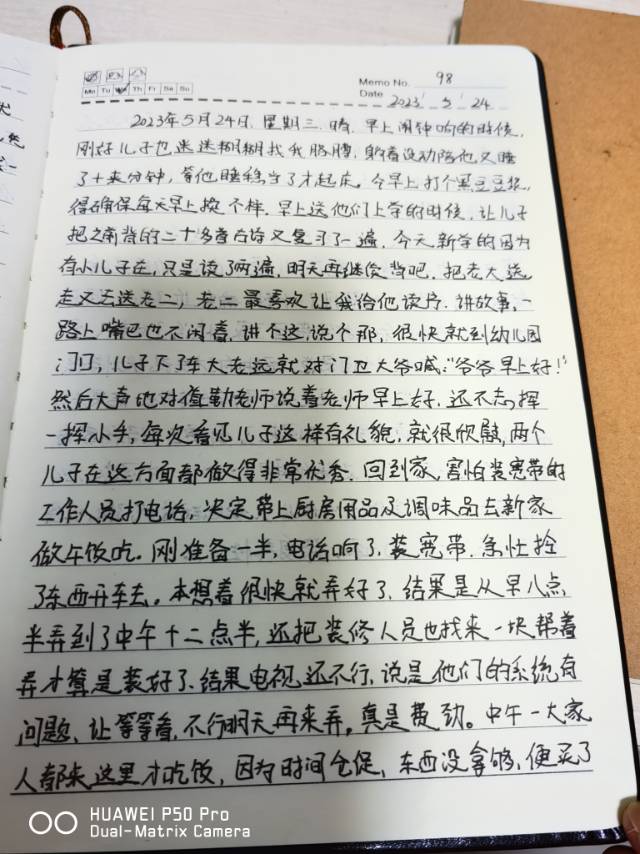 Memo No. 98
Mo Tu We Th Fr Sa Su
Date 2023 5 24
2023年5月24日,星期三,晴,早上闹钟响的时候,
刚好儿子也迷迷糊糊找我胳膊,躺着没动陪他又睡
了十来分钟,等他睡稳当了才起床。今早上打个黑豆豆浆,
得确保每天早上换个样,早上送他们上学的时候,让儿子
把之前背的二十多首古诗又复习了一遍,今天新学的因为
有小儿子在,只是读了两遍,明天再继续背吧,把老大送
走又去送老二,老二最喜欢让我给他读片、讲故事,一
路上嘴巴也不闲着,讲个这,说个那,很快就到幼儿园
门口,儿子下了车大老远就对门卫大爷喊:“爷爷早上好!”
然后大声地对值勤老师说着老师早上好,还不忘挥
一挥小手,每次看见儿子这样有礼貌,就很欣慰,两个
儿子在这方面都做得非常优秀。回到家,害怕装宽带的
工作人员打电话,决定带上厨房用品及调味品去新家
做午饭吃。刚准备一半,电话响了,装宽带,急忙拴
了东西开车去。本想着很快就弄好了,结果是从早八点
半弄到了中午十二点半,还把装修人员也找来一块帮着
弄才算是装好了、结果电视还不行,说是他们的系统有
问题、让等等看,不行明天再来弄。真是费劲。中午一大家
人都来这里才吃饭,因为时间仓促,东西没拿够,便买了
HUAWEI P50 Pro
Dual-Matrix Camera